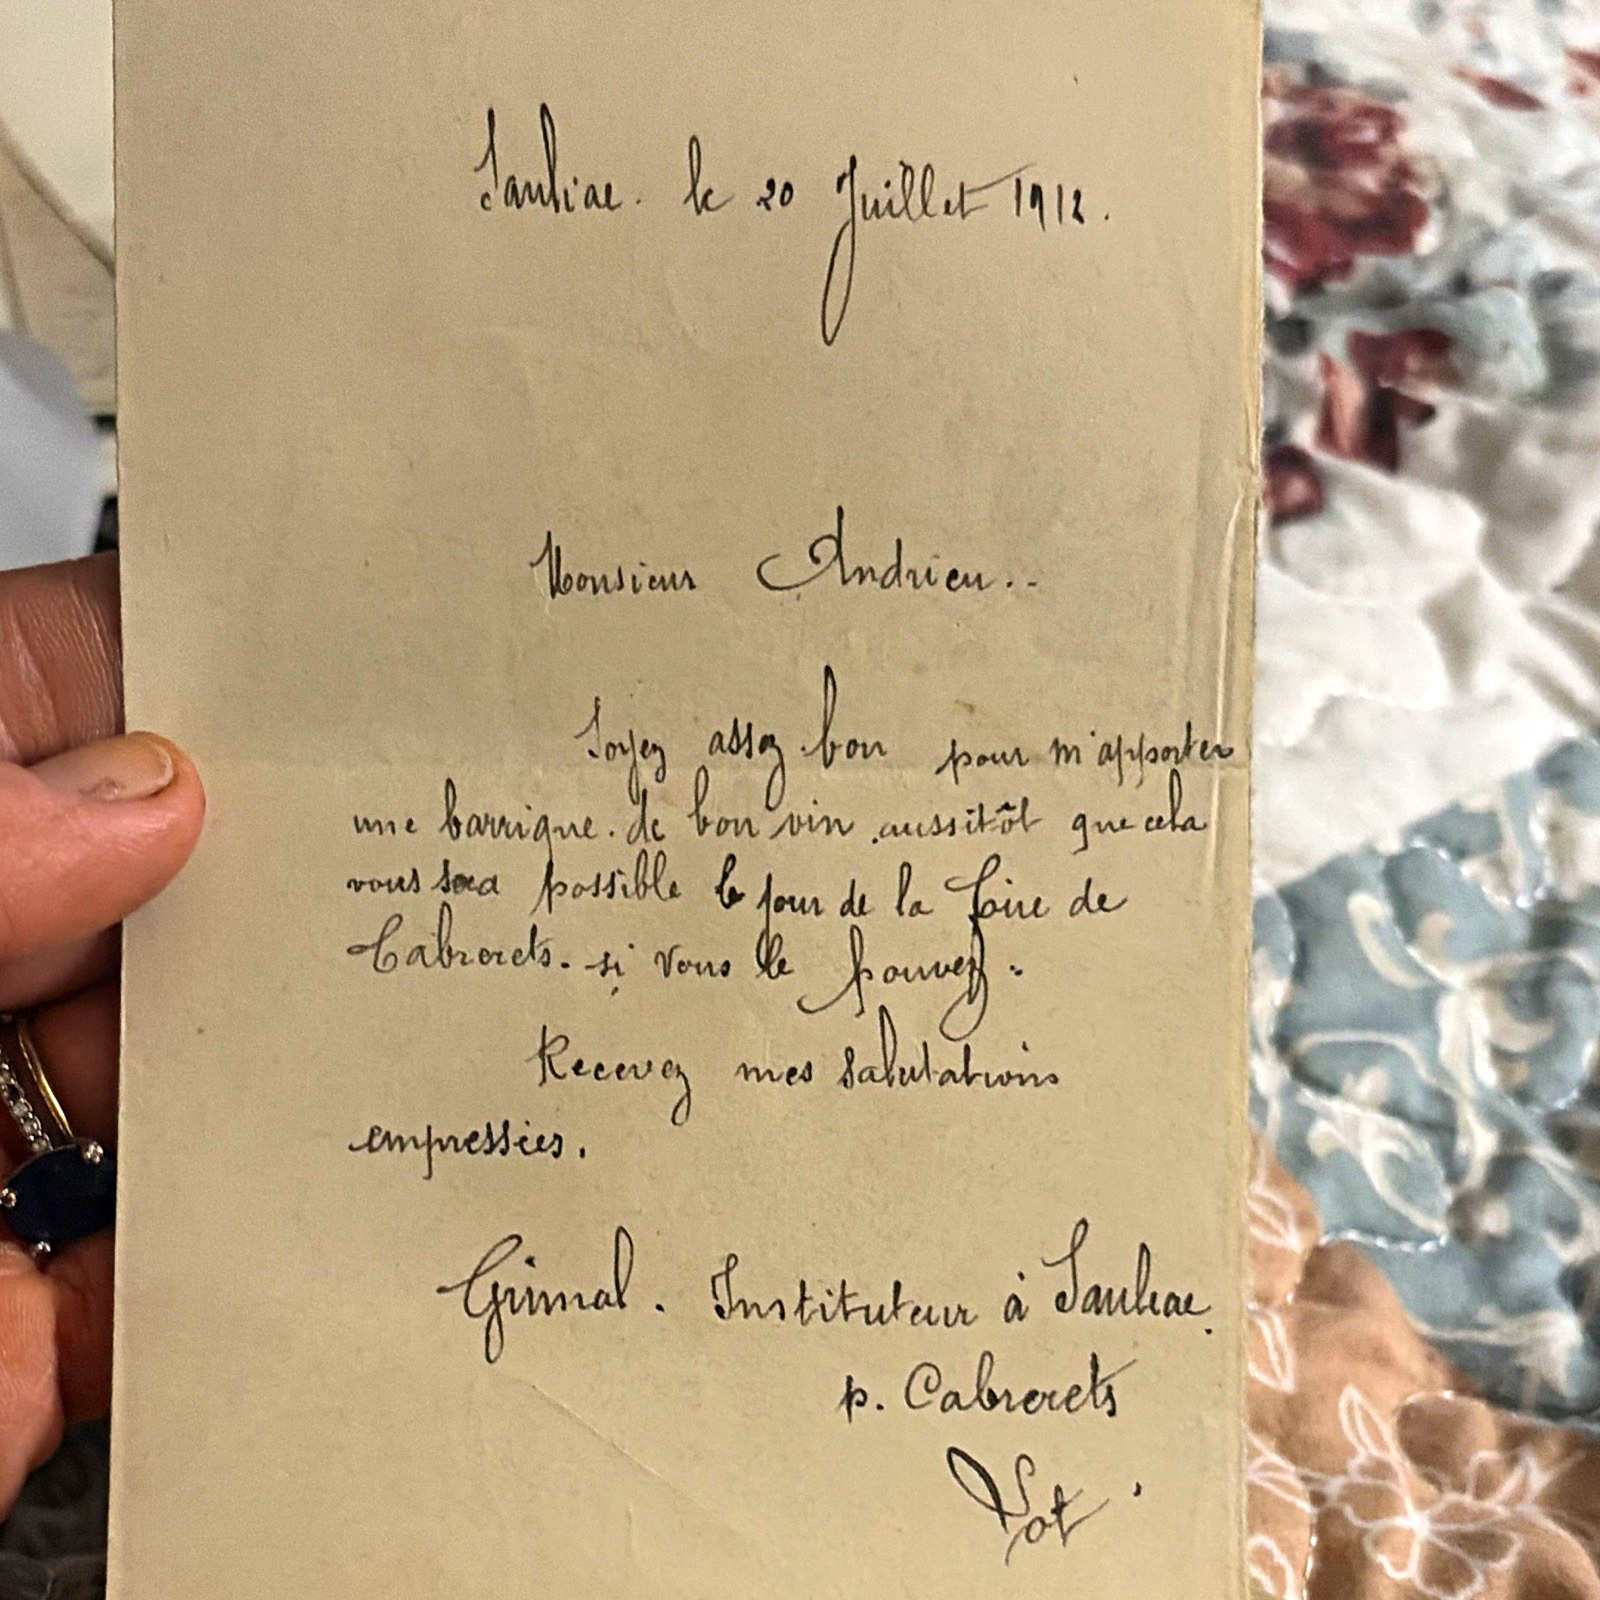 Sauliac. le 20 Juillet 1912.
Monsieur Andrieu..
Soyez assez bon pour m'apporter
une barrique. de bon vin aussitôt que cela
vous sera possible le jour de la foire de
Cabrerets. si vous le pouvez.
Recevez mes salutations
empressées.
Grimal. Instituteur à Sauliac.
p. Cabrerets
Lot.